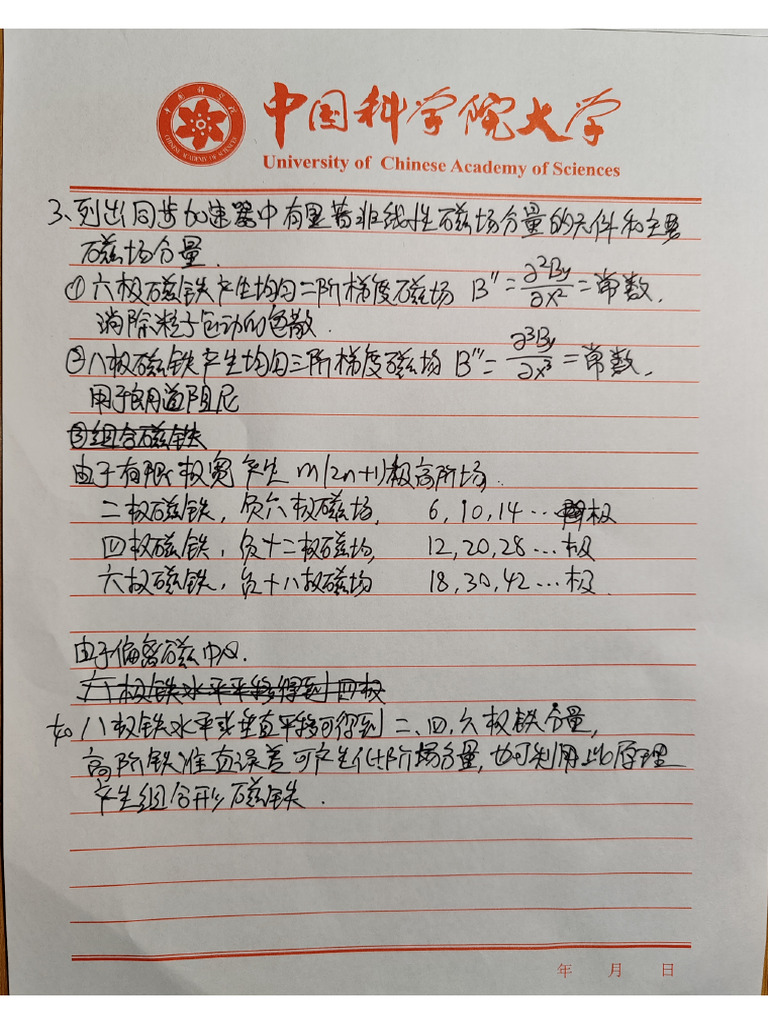 中国科学院大学
University of Chinese Academy of Sciences
3、列出同步加速器中有显著非线性磁场分量的元件和主要
磁场分量.
① 六极磁铁产生均匀二阶梯度磁场 B''=∂²By/∂x²=常数.
消除粒子包动的色散.
② 八极磁铁产生均匀三阶梯度磁场 B''=∂³By/∂x³=常数.
用于朗道阻尼
③ 组合磁铁
由于有限极宽产生 m(2n+1)极高阶场.
二极磁铁, 负六极磁场, 6,10,14…极
四极磁铁, 负十二极磁场, 12,20,28…极
六极磁铁, 负十八极磁场 18,30,42…极.
由于偏离磁中心.
六极铁水平平移得到四极
如 八极铁水平或垂直平移可得到 二、四、六极铁分量,
高阶铁准直误差可产生低阶场分量, 也可利用此原理
产生组合形磁铁.
年 月 日